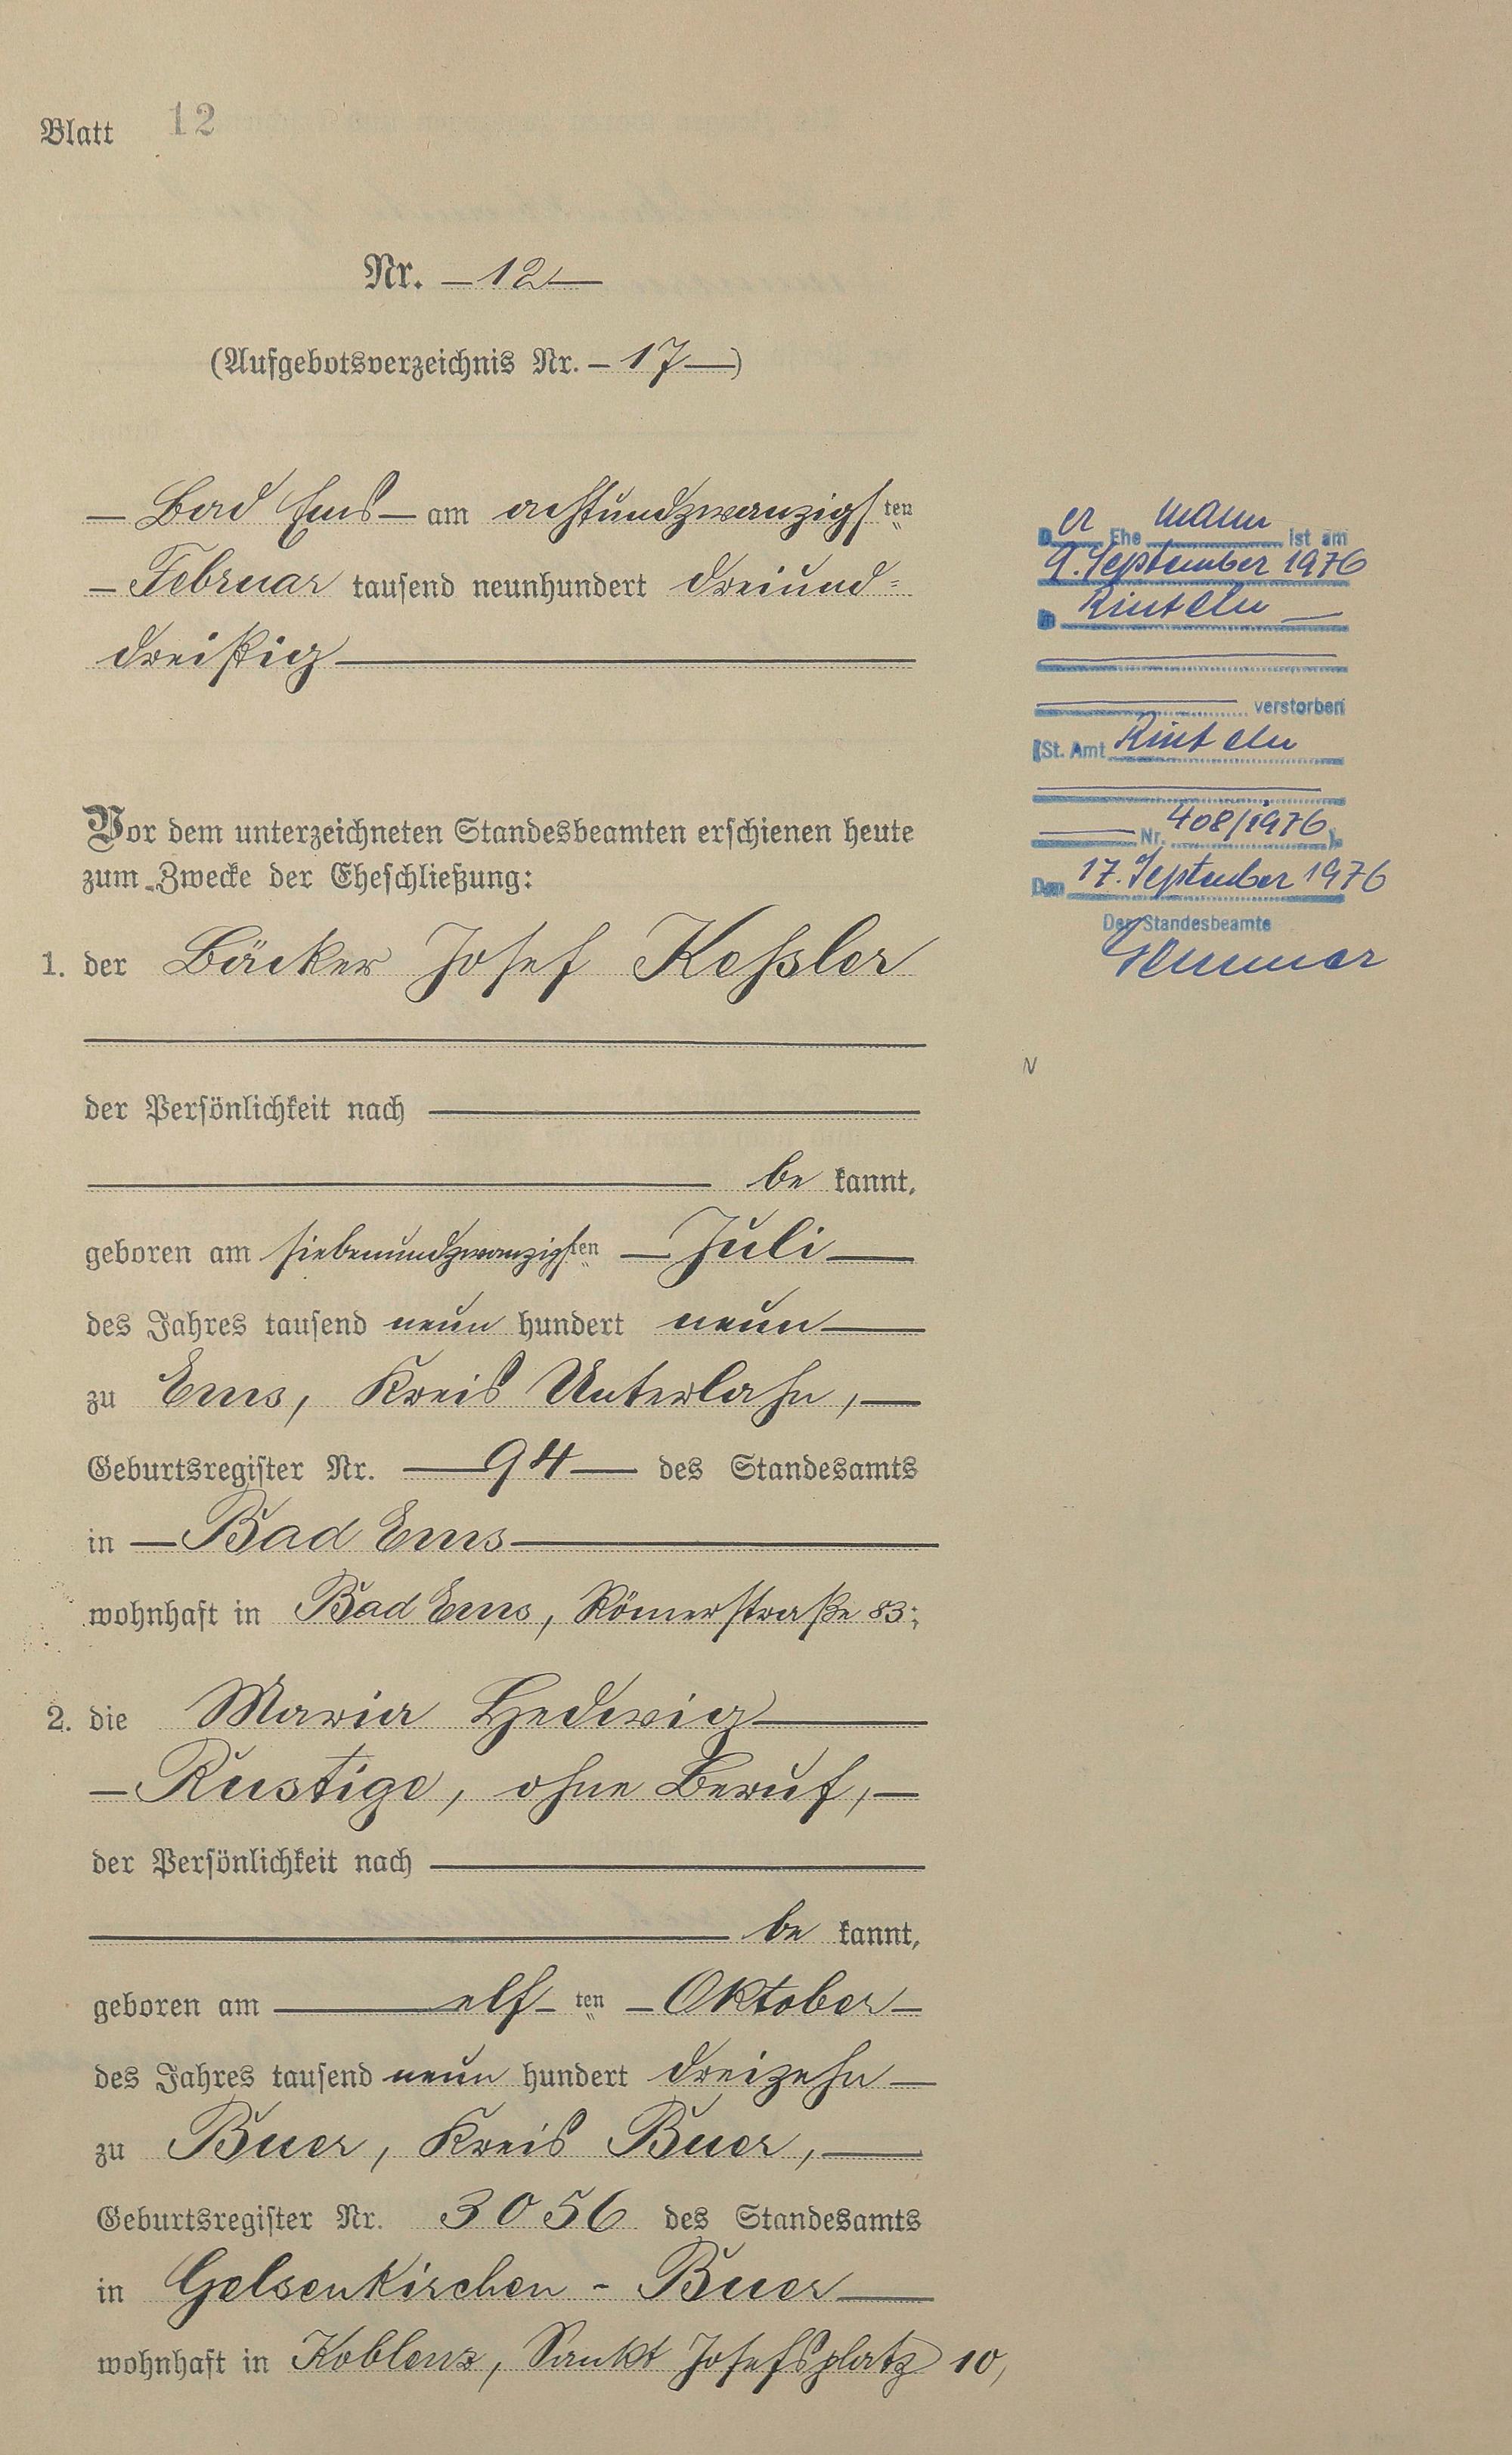 Blatt 12
Nr. — 12 —
(Aufgebotsverzeichnis Nr. — 17 —)
— Bad Ems — am achtundzwanzigsten
— Februar tausend neunhundert dreiund=
dreißig —
Vor dem unterzeichneten Standesbeamten erschienen heute
zum Zwecke der Eheschließung:
1. der Bäcker Josef Kessler
der Persönlichkeit nach —
— be kannt,
geboren am siebenundzwanzigsten — Juli —
des Jahres tausend neun hundert neun —
zu Ems, Kreis Unterlahn, —
Geburtsregister Nr. — 94 — des Standesamts
in — Bad Ems —
wohnhaft in Bad Ems, Römerstraße 83;
2. die Maria Hedwig —
— Rustige, ohne Beruf, —
der Persönlichkeit nach —
— be kannt,
geboren am — elf- ten — Oktober —
des Jahres tausend neun hundert dreizehn —
zu Buer, Kreis Buer, —
Geburtsregister Nr. 3056 des Standesamts
in Gelsenkirchen - Buer —
wohnhaft in Koblenz, Sankt Josefsplatz 10,
Der Ehe mann ist am
9. September 1976
in Rinteln —
— verstorben
(St. Amt Rinteln
— Nr. 408/1976)
Den 17. September 1976
Der Standesbeamte
N